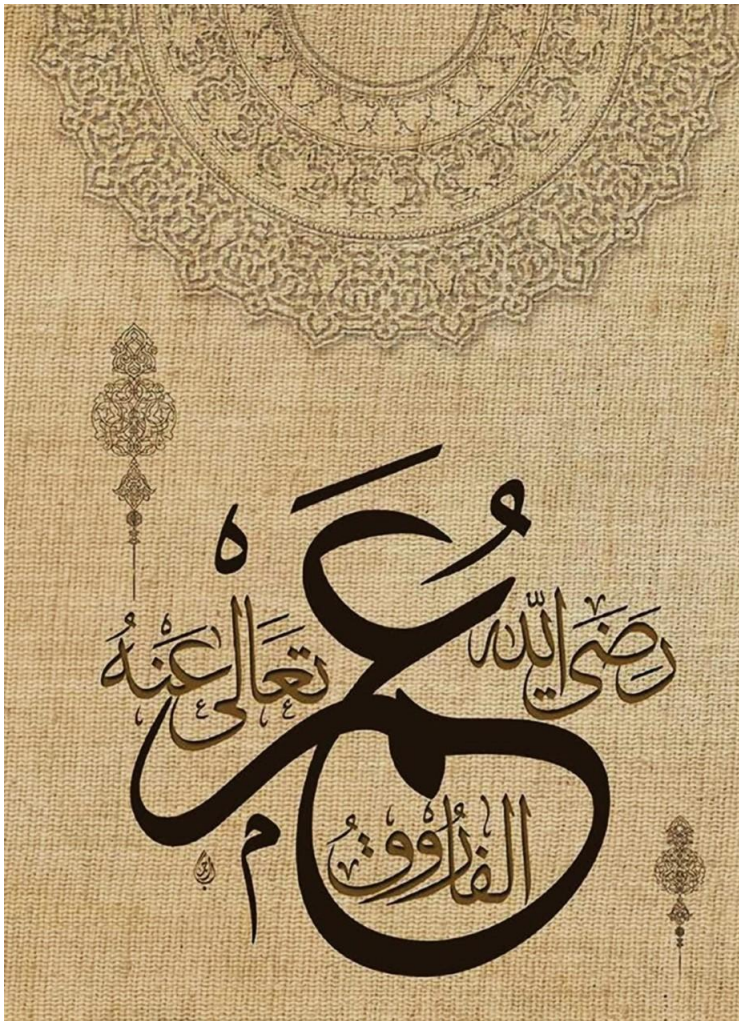 عُمَرْ
رَضَى اللّه تَعَالَى عَنْهُ
الفارُوقُ